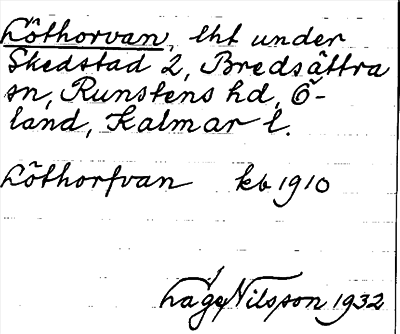 Löthorvan, lht under
Skedstad 2, Bredsättra
sn, Runstens hd, Ö-
land, Kalmar l.
Löthorfvan kb 1910
Lage Nilsson 1932